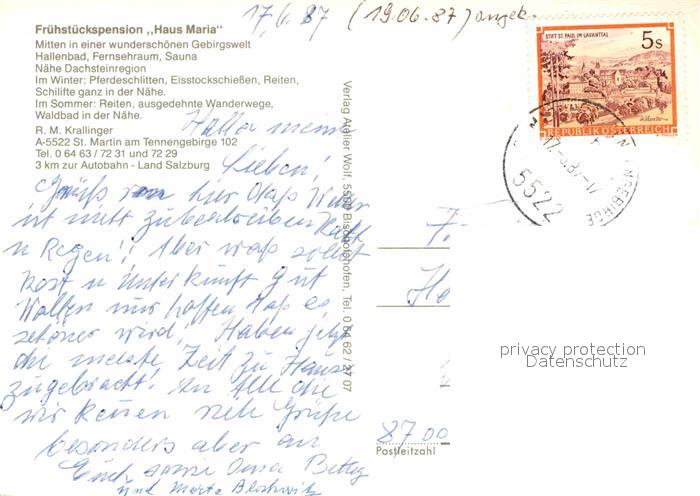 17/6.87 (19.06.87) angek.
Frühstückspension „Haus Maria"
Mitten in einer wunderschönen Gebirgswelt
Hallenbad, Fernsehraum, Sauna
Nähe Dachsteinregion
Im Winter: Pferdeschlitten, Eisstockschießen, Reiten,
Schilifte ganz in der Nähe.
Im Sommer: Reiten, ausgedehnte Wanderwege,
Waldbad in der Nähe.
R. M. Krallinger
A-5522 St. Martin am Tennengebirge 102
Tel. 0 64 63 / 72 31 und 72 29
3 km zur Autobahn - Land Salzburg
Hallo meine
Lieben!
hier Das Wetter
ist nicht zubeschreiben Kalt
u Regen! Aber was
Kost u Unterkunft gut
Wollen nur hoffen das es
schöner wird, Haben jetzt
die meiste Zeit zu Hause
zugebracht! An Alle die
wir kennen viele Grüße
besonders aber an
Euch sowie Betty
und Marta
Verlag Atelier Wolf, 5500 Bischofshofen, Tel. 0 64 62 / 27 07
STIFT ST. PAUL IM LAVANTTAL
5s
REPUBLIK ÖSTERREICH
5522
8700
Postleitzahl
privacy protection
Datenschutz